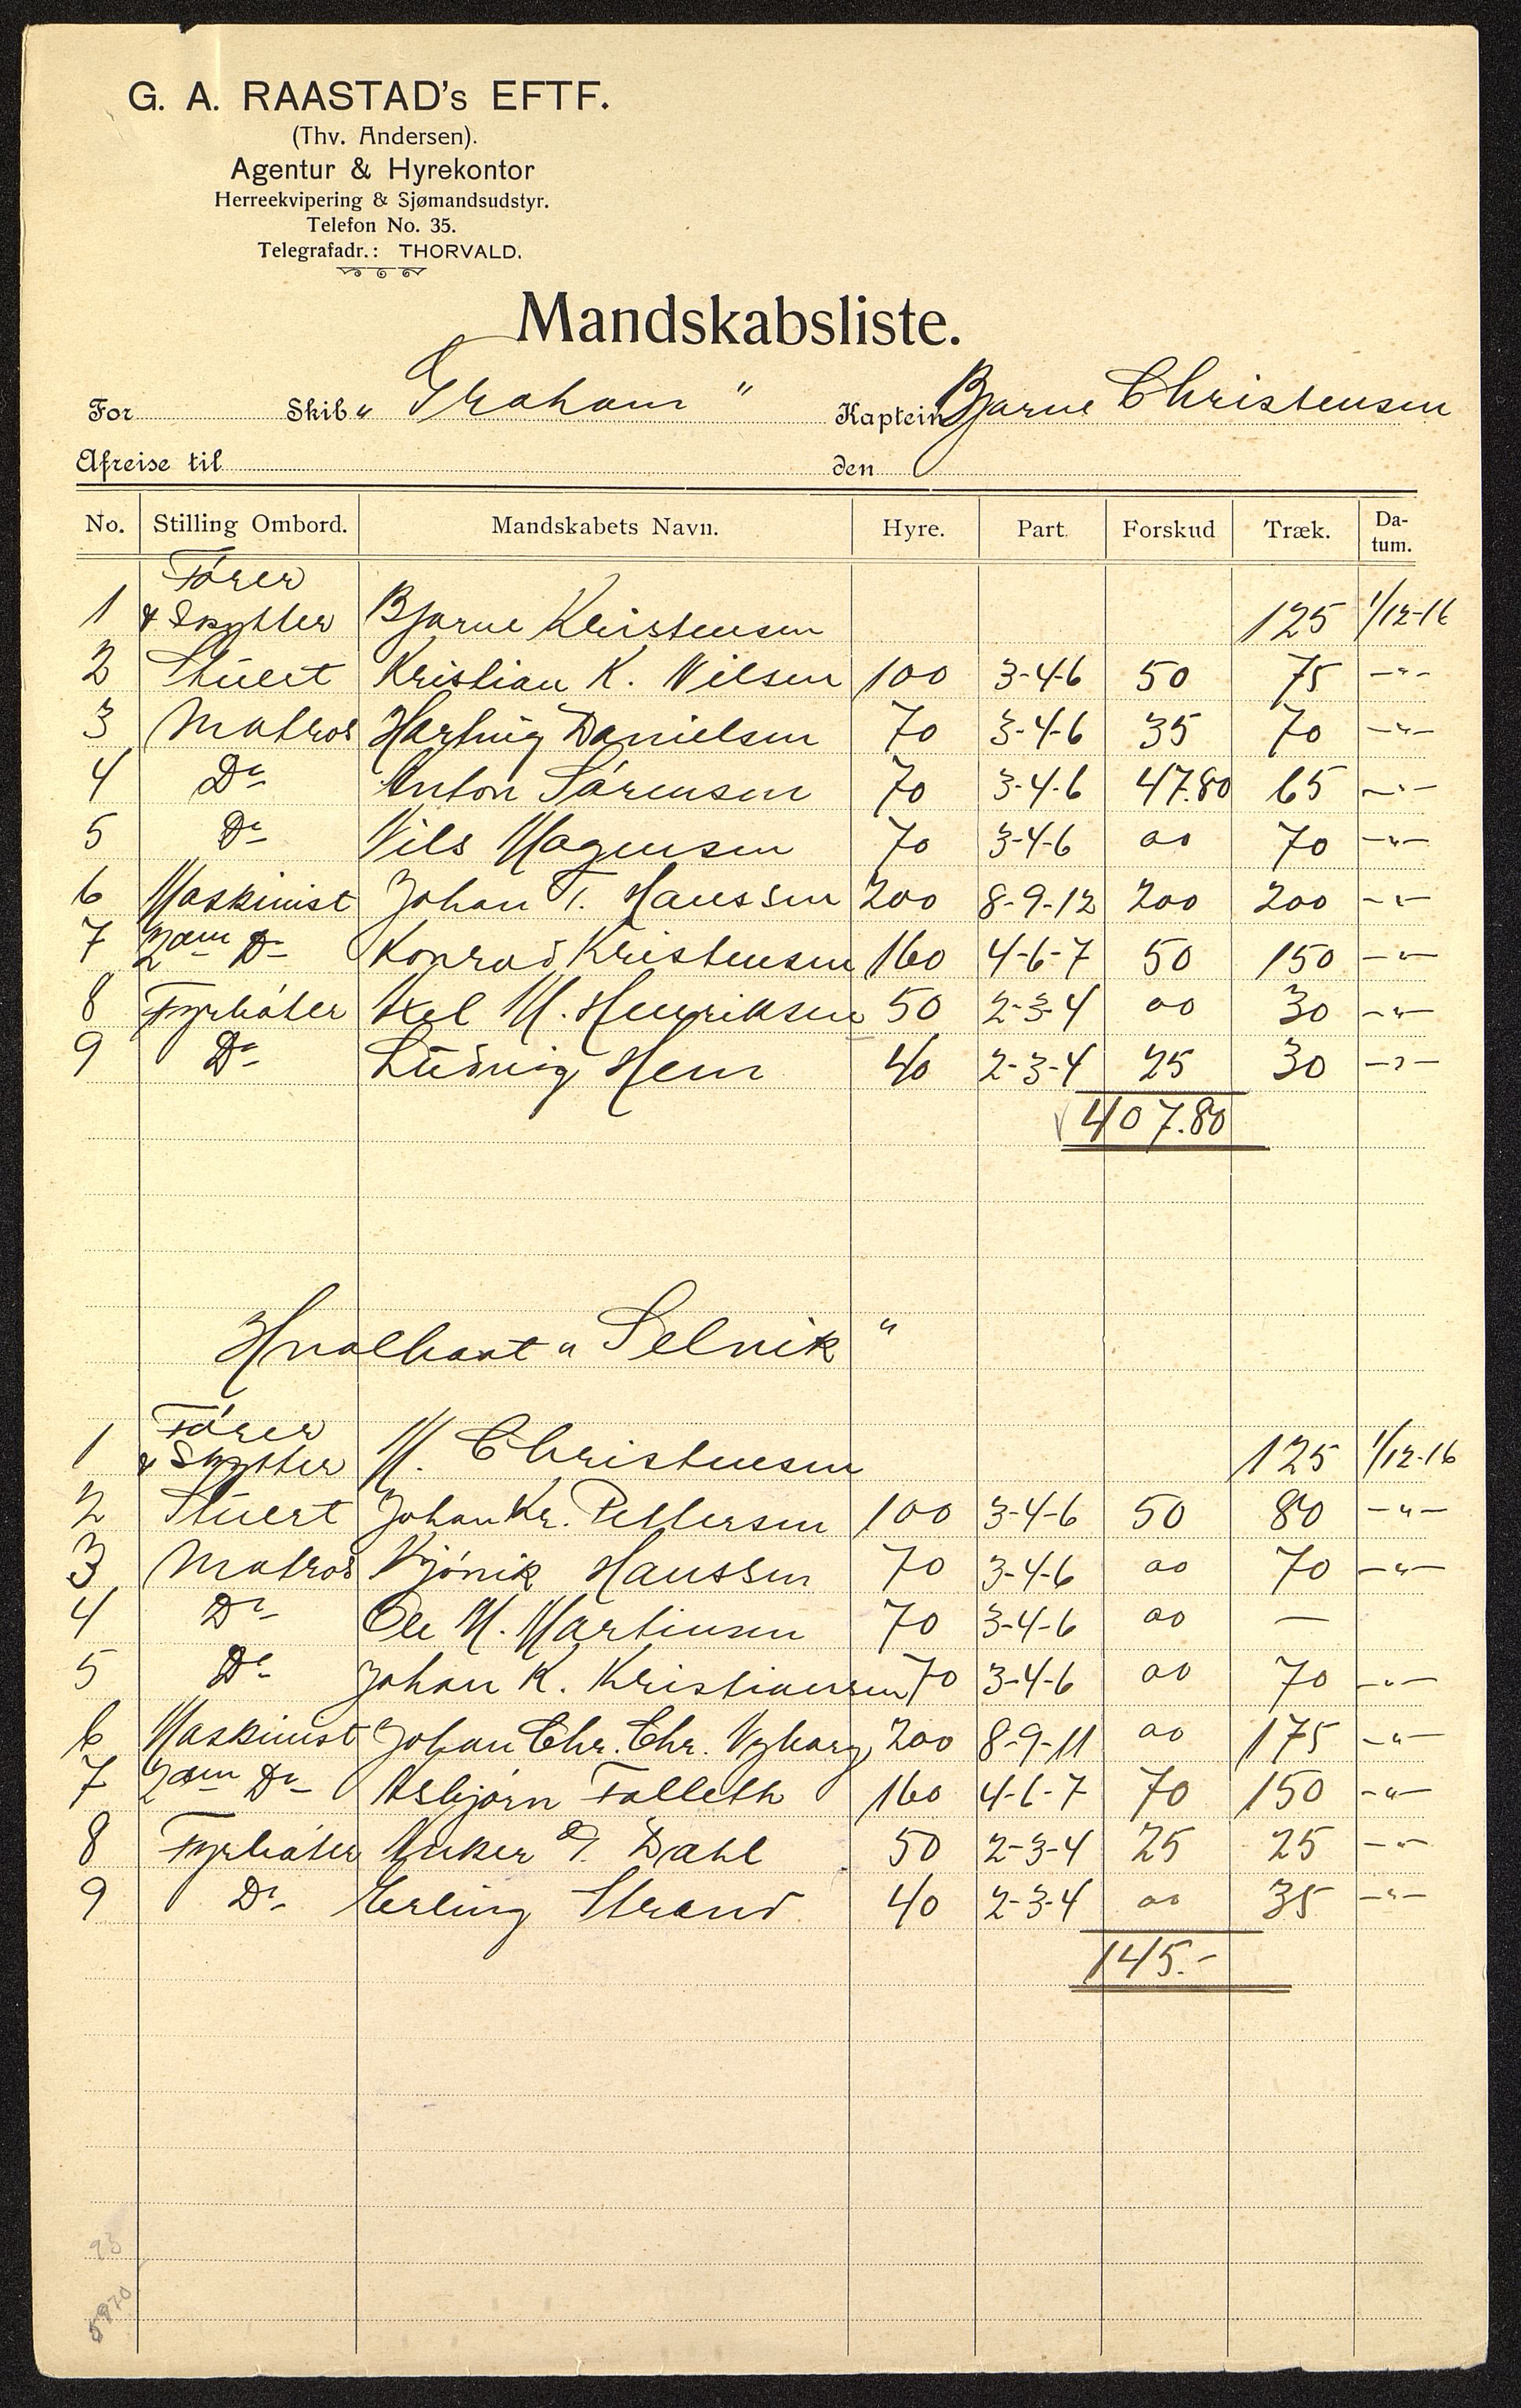 G. A. RAASTAD's EFTF.
(Thv. Andersen).
Agentur & Hyrekontor
Herreekvipering & Sjømandsudstyr.
Telefon No. 35.
Telegrafadr.: THORVALD.
Mandskabsliste.
For Skib „ Graham " Kaptein Bjarne Christensen
Afreise til den
No. Stilling Ombord. Mandskabets Navn. Hyre. Part. Forskud Træk. Da-tum.
Fører
1 & Skytter Bjarne Kristensen 125 1/12-16
2 Stuert Kristian K. Nilsen 100 3-4-6 50 75 -"-
3 Matros Hartvig Danielsen 70 3-4-6 35 70 -"-
4 Do Anton Sørensen 70 3-4-6 47.80 65 -"-
5 Do Nils Mogensen 70 3-4-6 00 70 -"-
6 Maskinist Johan T. Hanssen 200 8-9-12 200 200 -"-
7 2den Do Konrad Kristensen 160 4-6-7 50 150 -"-
8 Fyrbøter Axel M. Henriksen 50 2-3-4 00 30 -"-
9 Do Ludvig Hem 40 2-3-4 25 30 -"-
407.80
Hvalbaat „ Selvik "
Fører
1 & Skytter M. Christensen 125 1/12-16
2 Stuert Johan Kr. Pettersen 100 3-4-6 50 80 -"-
3 Matros Kjønik Hanssen 70 3-4-6 00 70 -"-
4 Do Ole M. Martinsen 70 3-4-6 00 —
5 Do Johan K. Kristiansen 70 3-4-6 00 70 -"-
6 Maskinist Johan Chr. Chr. Nyborg 200 8-9-11 00 175 -"-
7 2den Do Asbjørn Falleth 160 4-6-7 70 150 -"-
8 Fyrbøter Anker G. Dahl 50 2-3-4 25 25 -"-
9 Do Erling Strand 40 2-3-4 00 35 -"-
145.-
93
5970